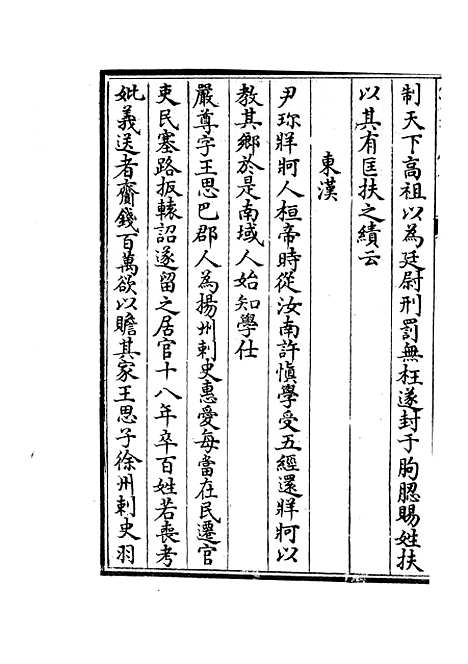 制天下高祖以為廷尉刑罰無枉遂封于朐䏰賜姓扶
以其有匡扶之績云
東漢
尹珎牂牁人桓帝時從汝南許慎學受五經還牂牁以
教其鄉於是南域人始知學仕
嚴尊字王思巴郡人為揚州刺史惠愛每當在民遷官
吏民塞路扳轅詔遂留之居官十八年卒百姓若喪考
妣義送者賫錢百萬欲以贍其家王思子徐州刺史羽